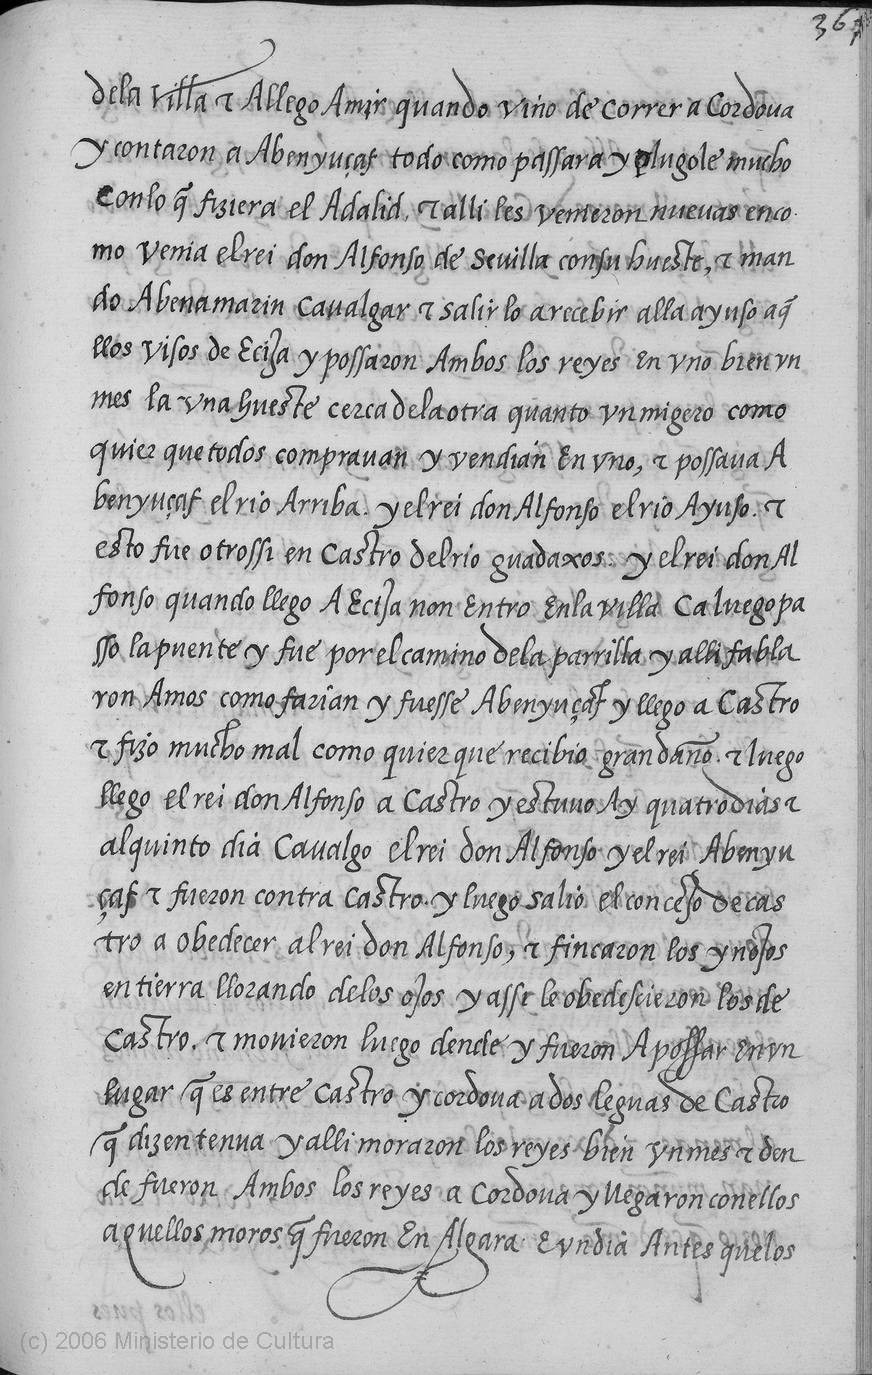 367
dela villa τ Allego Amir quando vino de correr a Cordova
y contaron a Abenyuçaf todo como passara y plugole mucho
con lo q̃ fiziera el Adalid, τ alli les venieron nuevas en co
mo venia el rei don Alfonso de sevilla con su hueste, τ man
do Abenamarin cavalgar τ salir lo a recebir alla ayuso aq̃
llos visos de Ecija y possaron Ambos los reyes en vno bien vn
mes la vna hueste cerca dela otra quanto vn migero como
quier que todos compravan y vendian En vno, τ possava A
benyuçaf el rio Arriba. y el rei don Alfonso el rio Ayuso. τ
esto fue otrossi en Castro del rio guadaxos. y el rei don Al
fonso quando llego A Ecija non Entro Enla villa Ca luego pa
sso la puente y fue por el camino dela parrilla y alli fabla
ron Amos como farian y fuesse Abenyuçaf y llego a Castro
τ fizo mucho mal como quier que recibio gran daño. τ luego
llego el rei don Alfonso a Castro y estuvo Ay quatro dias τ
al quinto dia Cavalgo el rei don Alfonso y el rei Abenyu
çaf τ fueron contra Castro. y luego salio el concejo de cas
tro a obedecer al rei don Alfonso, τ fincaron los ynojos
en tierra llorando delos ojos y asse le obedescieron los de
Castro. τ movieron luego dende y fueron A possar En vn
lugar q̃ es entre Castro y cordova a dos leguas de Castro
q̃ dizen tenva y alli moraron los reyes bien vn mes τ den
de fueron Ambos los reyes a Cordova y llegaron con ellos
aquellos moros q̃ fueron En Algara E vn dia Antes que los
ellos pues
(c) 2006 Ministerio de Cultura